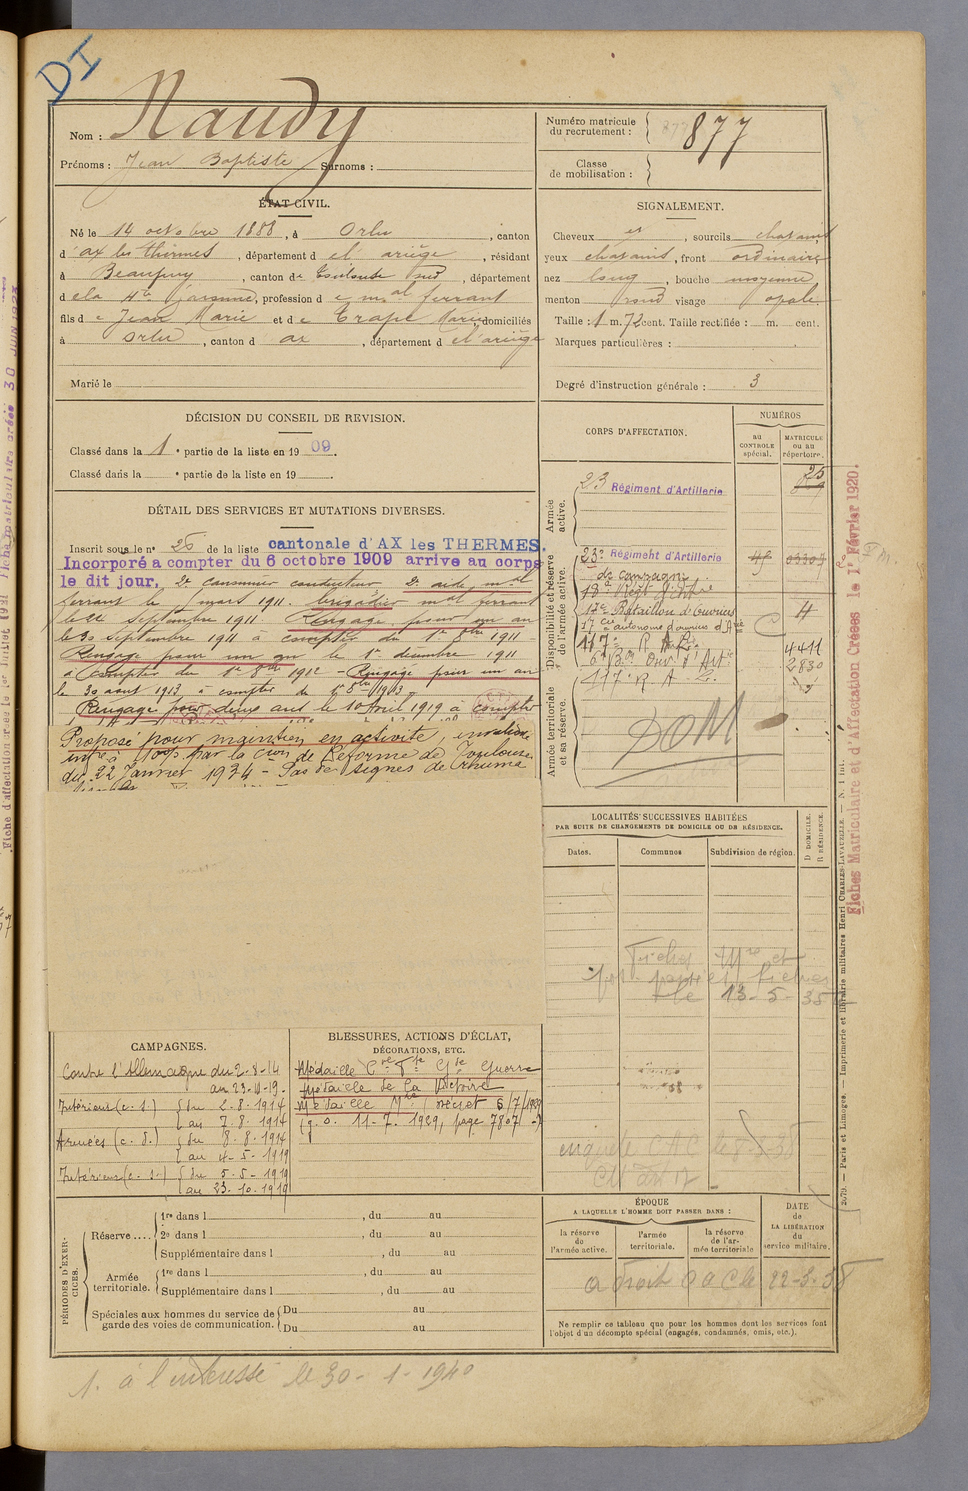 DI
Nom : Naudy
Prénoms : Jean Baptiste Surnoms :
Numéro matricule du recrutement : 877
Classe de mobilisation :
ÉTAT CIVIL.
Né le 14 octobre 1888, à Orlu, canton
d'ax les thermes, département de l'ariège, résidant
à Beaupuy, canton de Toulouse sud, département
de la Hte Garonne, profession de mal ferrant
fils de Jean Marie et de Trape Marie, domiciliés
à Orlu, canton d ax, département de l'ariège
Marié le
SIGNALEMENT.
Cheveux et, sourcils chatains
yeux chatains, front ordinaire
nez long, bouche moyenne
menton rond visage opale
Taille : 1 m. 72 cent. Taille rectifiée : m. cent.
Marques particulières :
Degré d'instruction générale : 3
DÉCISION DU CONSEIL DE REVISION.
Classé dans la 1e partie de la liste en 1909.
Classé dans la e partie de la liste en 19
DÉTAIL DES SERVICES ET MUTATIONS DIVERSES.
Inscrit sous le n° 26 de la liste cantonale d'AX les THERMES.
Incorporé a compter du 6 octobre 1909 arrive au corps
le dit jour, 2e canonnier conducteur 2e aide mal
ferrant le 1 mars 1911. brigadier mal ferrant
le septembre 1911. Rengagé pour un an
le 30 septembre 1911 à compter du 1er 8bre 1911 -
Rengagé pour un an le 1er décembre 1911
à compter du 1er 8bre 1912 - Rengagé pour un an
le 30 aout 1913, à compter du 1er 8bre 1913
Rengagé pour deux ans le 10 Avril 1919 à compter
Proposé pour maintien en activité, invalidité
infre à 10% par la Cion de Réforme de Toulouse
du 22 Janvier 1934 - Pas de signes de rhuma
CORPS D'AFFECTATION.
NUMÉROS
au CONTROLE spécial.
MATRICULE ou au répertoire.
Armée active.
23 Régiment d'Artillerie
25
Disponibilité et réserve de l'armée active.
23e Régiment d'Artillerie
de campagne
18e Régt d'Artie
17e Bataillon d'Ouvriers 4
17 Cie autonome d'ouvriers d'Artie
117e R A L. 4411
6e Bon Ouv. d'Artie 2830
117e R. A. L.
Armée territoriale et sa réserve.
DOM
LOCALITÉS SUCCESSIVES HABITÉES
PAR SUITE DE CHANGEMENTS DE DOMICILE OU DE RÉSIDENCE.
Dates. Communes Subdivision de région. D DOMICILE. R RÉSIDENCE.
Fiches Mre et
le 13-5-35
CAMPAGNES.
Contre l'Allemagne du 2-8-14
au 23-10-19.
Intérieur (c. s.) du 2-8-1914
au 7-8-1914
Armées (c. d.) du 8-8-1914
au 4-5-1919
Intérieur (c. s.) du 5-5-1919
au 23-10-1919
BLESSURES, ACTIONS D'ÉCLAT,
DÉCORATIONS, ETC.
Médaille Cve Fse Gde Guerre
Médaille de la Victoire
Médaille Mre (décret 6/7/1929
(J. O. 11-7-1929, page 7807)
PÉRIODES D'EXERCICES.
Réserve ....
1re dans l , du au
2e dans l , du au
Supplémentaire dans l , du au
Armée territoriale.
1re dans l , du au
Supplémentaire dans l , du au
Spéciales aux hommes du service de garde des voies de communication.
Du au
Du au
ÉPOQUE
A LAQUELLE L'HOMME DOIT PASSER DANS :
la réserve de l'armée active.
l'armée territoriale.
la réserve de l'armée territoriale
DATE de LA LIBÉRATION du service militaire.
a droit a a C le 22-3-35
Ne remplir ce tableau que pour les hommes dont les services font
l'objet d'un décompte spécial (engagés, condamnés, omis, etc.).
à l'intéressé le 30-1-1940
Fiches Matriculaire et d'Affectation Créées le 1er Février 1920.
2079. — Paris et Limoges. — Imprimerie et librairie militaires Henri CHARLES-LAVAUZELLE. —
Fiche d'affectation créée le 1er Juillet 1931
Fiche matriculaire créée 30 JUIN 1923